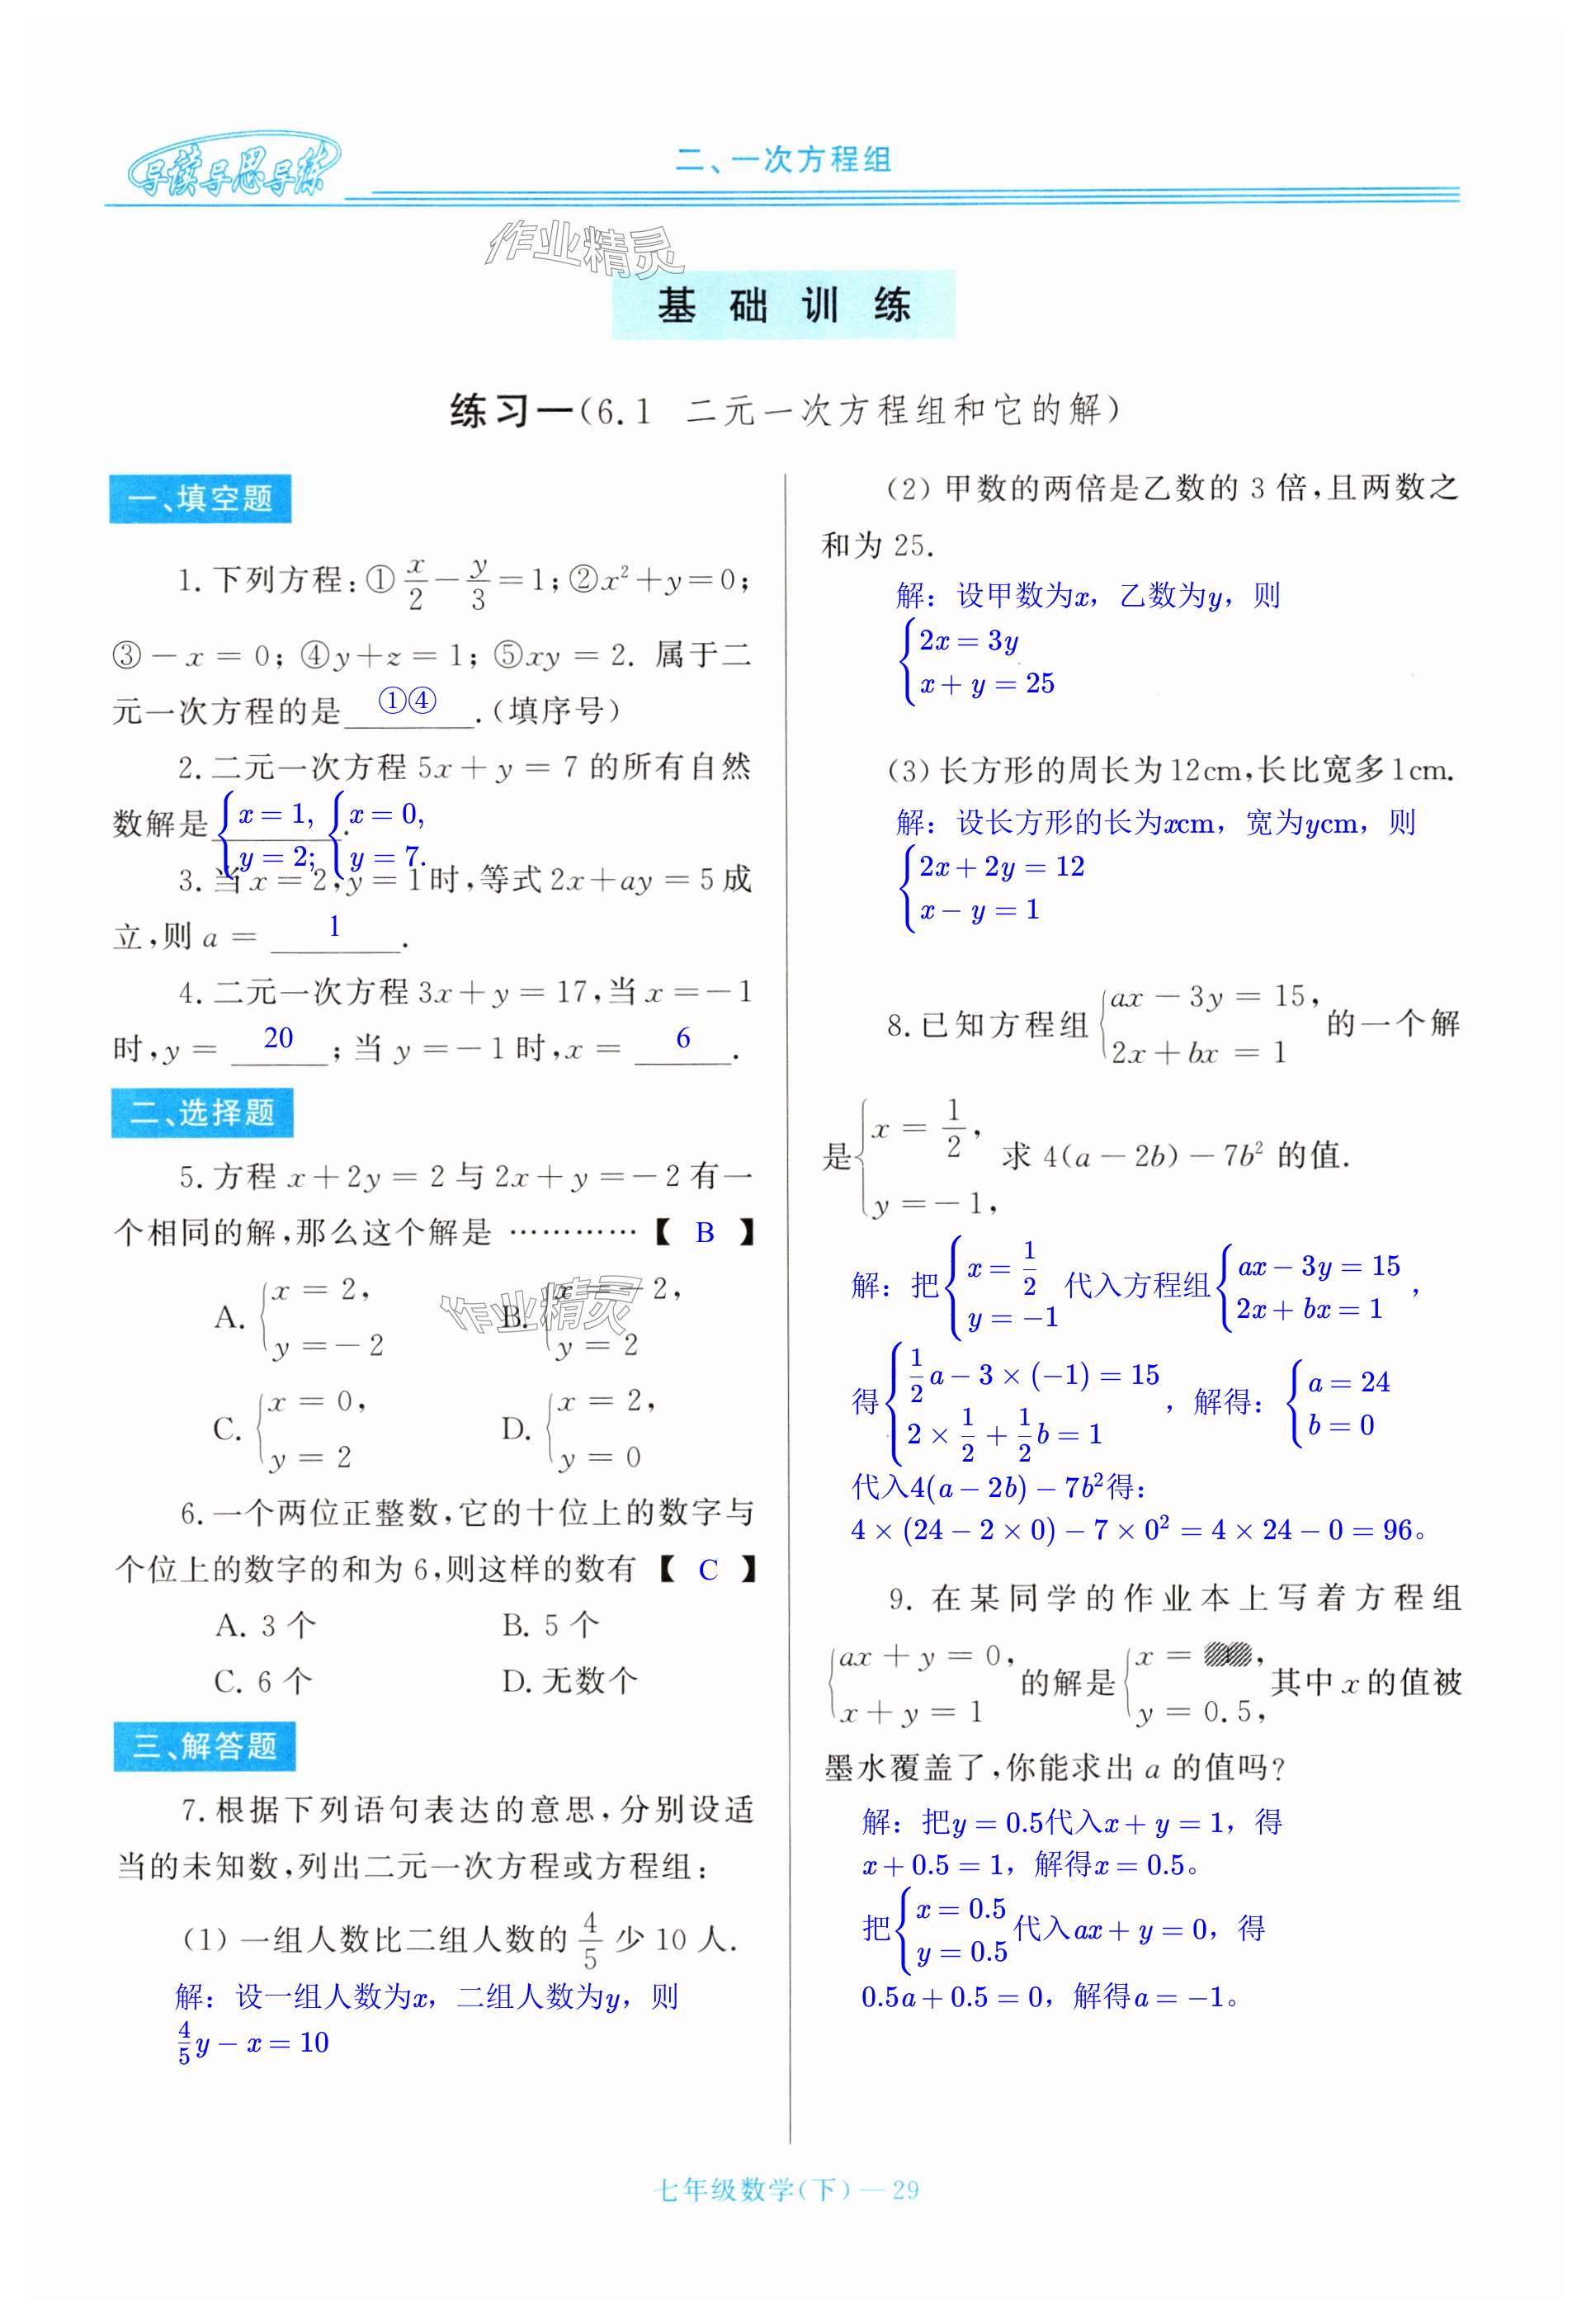 导读导思导练
二、一次方程组
作业精灵
基 础 训 练
练习一(6.1 二元一次方程组和它的解)
一、填空题
1. 下列方程:① x/2 − y/3 = 1; ② x² + y = 0;
③ − x = 0; ④ y + z = 1; ⑤ xy = 2. 属于二
元一次方程的是 ①④ .(填序号)
2. 二元一次方程 5x + y = 7 的所有自然
数解是 { x = 1, y = 2; { x = 0, y = 7. .
3. 当 x = 2, y = 1 时,等式 2x + ay = 5 成
立,则 a = 1 .
4. 二元一次方程 3x + y = 17,当 x = − 1
时, y = 20 ; 当 y = − 1 时, x = 6 .
二、选择题
5. 方程 x + 2y = 2 与 2x + y = − 2 有一
个相同的解,那么这个解是 …………【 B 】
A. { x = 2, y = − 2
B. { x = − 2, y = 2
作业精灵
C. { x = 0, y = 2
D. { x = 2, y = 0
6. 一个两位正整数,它的十位上的数字与
个位上的数字的和为 6,则这样的数有 【 C 】
A. 3 个 B. 5 个
C. 6 个 D. 无数个
三、解答题
7. 根据下列语句表达的意思,分别设适
当的未知数,列出二元一次方程或方程组:
(1) 一组人数比二组人数的 4/5 少 10 人.
解：设一组人数为x，二组人数为y，则
4/5 y − x = 10
(2) 甲数的两倍是乙数的 3 倍,且两数之
和为 25.
解：设甲数为x，乙数为y，则
{ 2x = 3y
x + y = 25
(3) 长方形的周长为 12cm,长比宽多 1cm.
解：设长方形的长为xcm，宽为ycm，则
{ 2x + 2y = 12
x − y = 1
8. 已知方程组 { ax − 3y = 15, 2x + bx = 1 的一个解
是 { x = 1/2, y = − 1, 求 4(a − 2b) − 7b² 的值.
解：把 { x = 1/2 y = −1 代入方程组 { ax − 3y = 15 2x + bx = 1 ，
得 { 1/2 a − 3 × (−1) = 15 2 × 1/2 + 1/2 b = 1 ，解得： { a = 24 b = 0
代入4(a − 2b) − 7b²得：
4 × (24 − 2 × 0) − 7 × 0² = 4 × 24 − 0 = 96。
9. 在某同学的作业本上写着方程组
{ ax + y = 0, x + y = 1 的解是 { x = , y = 0.5, 其中 x 的值被
墨水覆盖了,你能求出 a 的值吗?
解：把y = 0.5代入x + y = 1，得
x + 0.5 = 1，解得x = 0.5。
把 { x = 0.5 y = 0.5 代入ax + y = 0，得
0.5a + 0.5 = 0，解得a = −1。
七年级数学(下) — 29